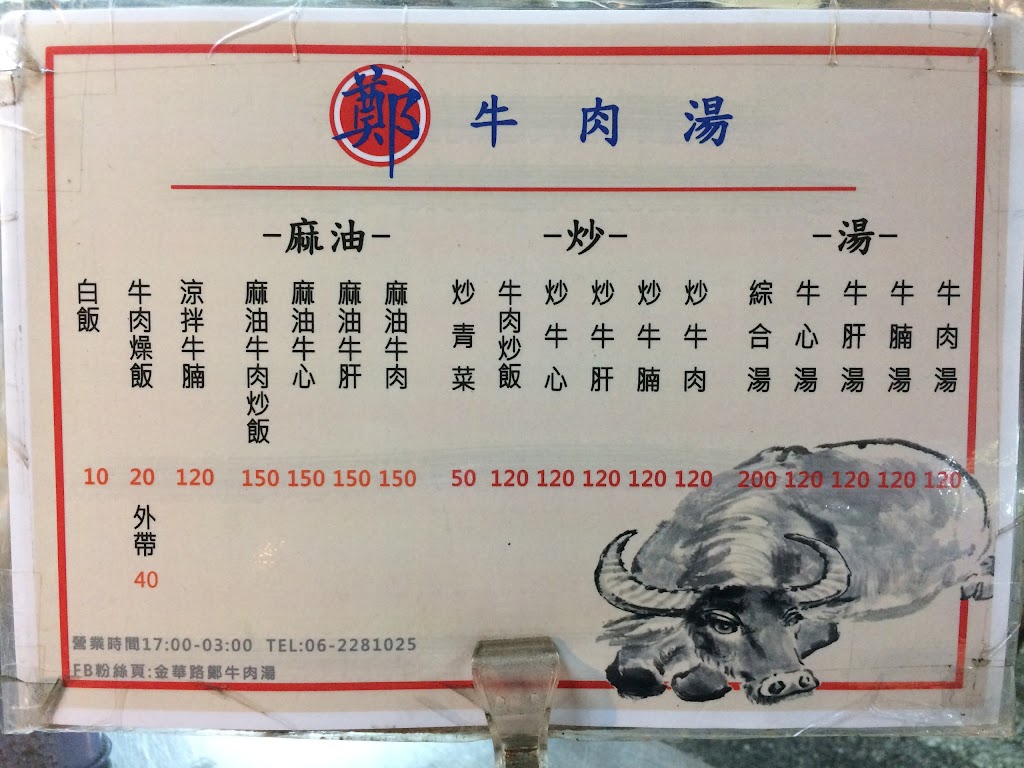 鄭牛肉湯
-湯-
牛肉湯 120
牛腩湯 120
牛肝湯 120
牛心湯 120
綜合湯 200
-炒-
炒牛肉 120
炒牛腩 120
炒牛肝 120
炒牛心 120
牛肉炒飯 120
炒青菜 50
-麻油-
麻油牛肉 150
麻油牛肝 150
麻油牛心 150
麻油牛肉炒飯 150
涼拌牛腩 120
牛肉燥飯 20
外帶 40
白飯 10
營業時間17:00-03:00 TEL:06-2281025
FB粉絲頁:金華路鄭牛肉湯